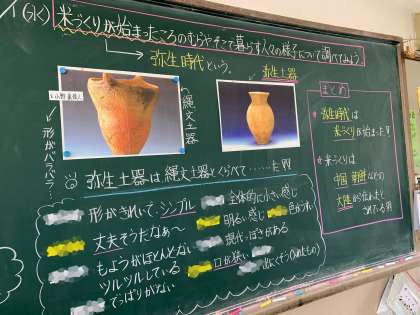 1/9(水) 米づくりが始まったころのむらやそこで暮らす人々の様子について調べてみよう。
弥生時代という。
弥生土器
縄文土器
形がバラバラ…
弥生土器は縄文土器とくらべて……だ!!
形がきれいで、シンプル
丈夫そうだなぁ〜
もようがほとんどない
ツルツルしている
でっぱりがない
全体的に小さい感じ
明るい感じ
色がうすい
現代っぽさがある
口が狭い
まとめ
弥生時代は
米づくりが始まった!!
米づくりは
中国 朝鮮などの
大陸から伝わったと
されている!!